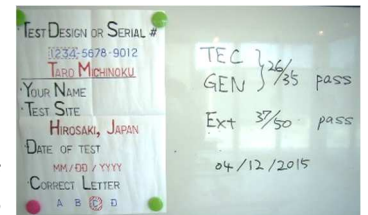 Test Design or Serial #
1234-5678-9012
Taro Michinoku
Your Name
Test Site
Hirosaki, Japan
Date of test
MM/DD/YYYY
Correct Letter
A B C D
TEC
GEN
26/35 pass
Ext 37/50 pass
04/12/2015